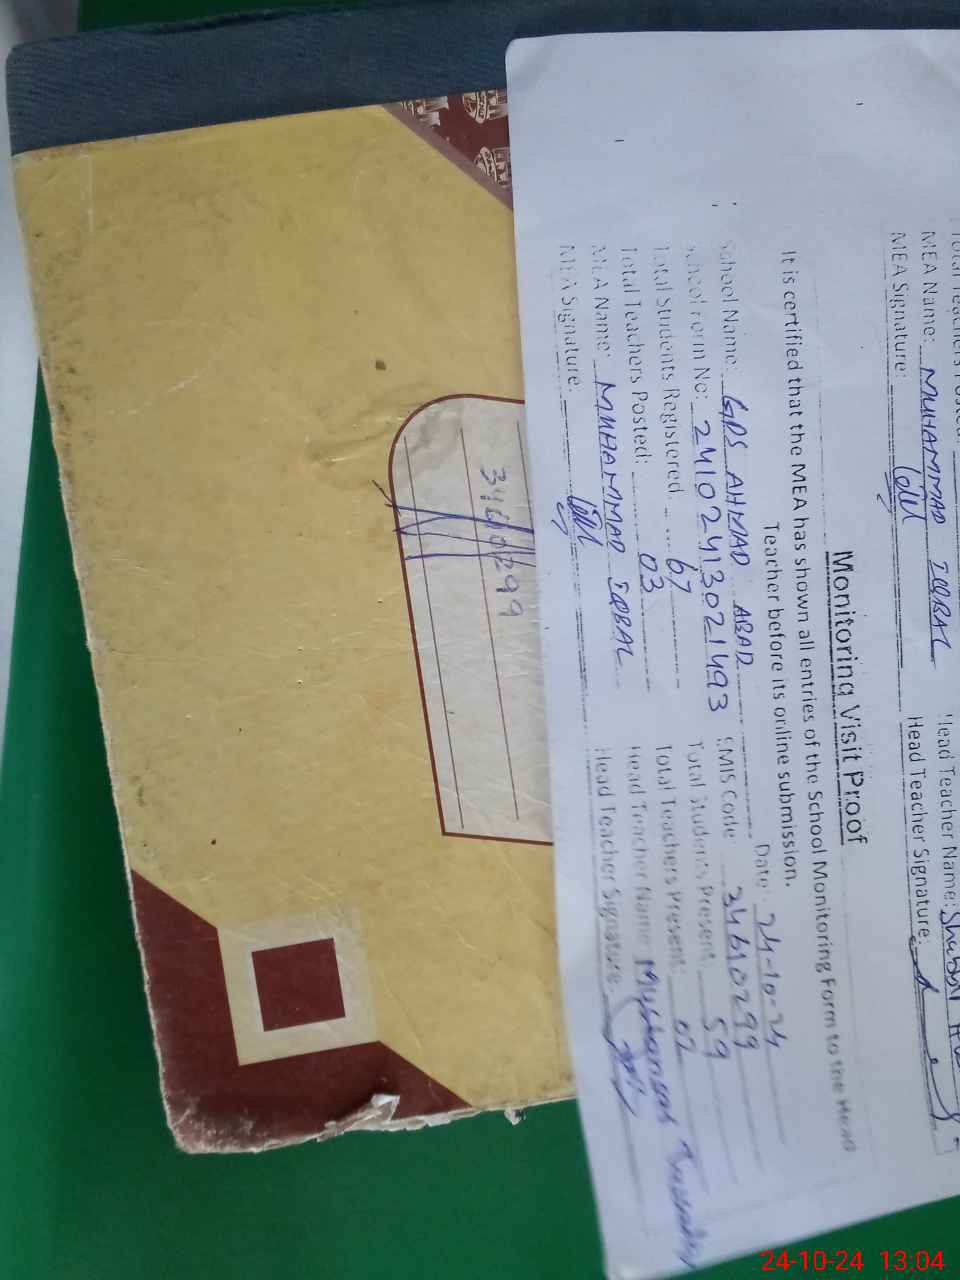 MEA Name: MUHAMMAD IQBAL Head Teacher Name:
MEA Signature: Head Teacher Signature:
Monitoring Visit Proof
It is certified that the MEA has shown all entries of the School Monitoring Form to the Head
Teacher before its online submission.
Date: 24-10-24
School Name: GPS AHMAD ABAD EMIS Code: 34610299
School Form No: 24102413021493 Total Students Present: 59
Total Students Registered 67 Total Teachers Present: 02
Total Teachers Posted: 03 Head Teacher Name
MEA Name: MUHAMMAD IQBAL Head Teacher Signature:
MEA Signature:
34610299
24-10-24 13:04